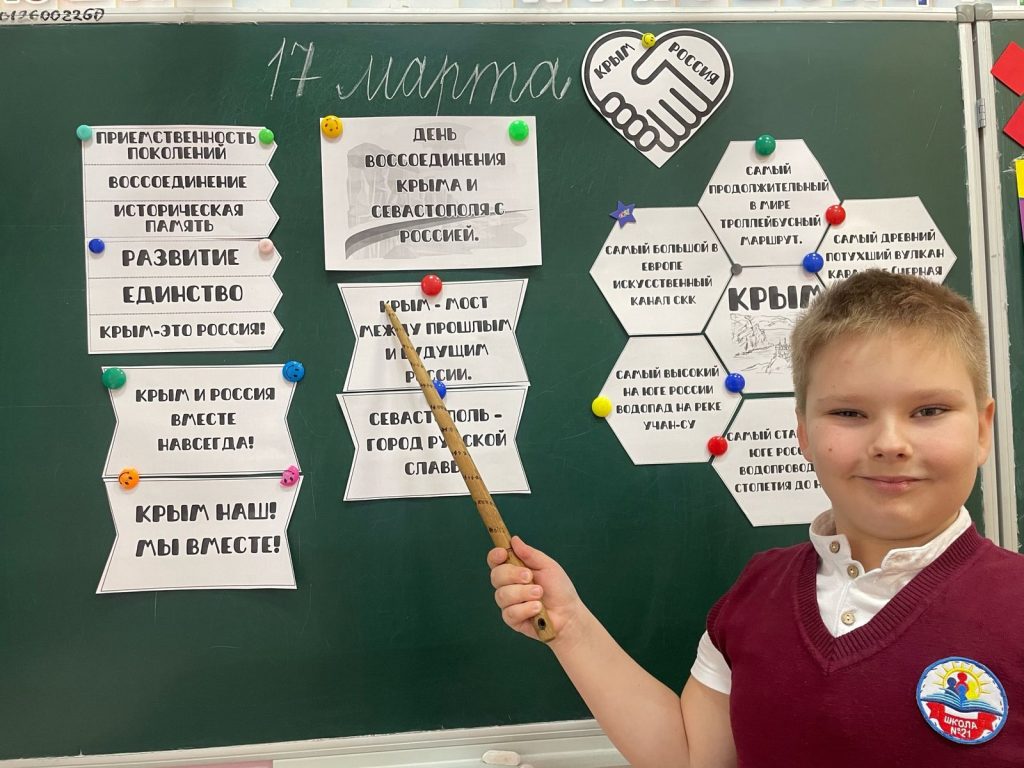 17 марта
КРЫМ
РОССИЯ
ПРИЕМСТВЕННОСТЬ
ПОКОЛЕНИЙ
ВОССОЕДИНЕНИЕ
ИСТОРИЧЕСКАЯ
ПАМЯТЬ
РАЗВИТИЕ
ЕДИНСТВО
КРЫМ-ЭТО РОССИЯ!
КРЫМ И РОССИЯ
ВМЕСТЕ
НАВСЕГДА!
КРЫМ НАШ!
МЫ ВМЕСТЕ!
ДЕНЬ
ВОССОЕДИНЕНИЯ
КРЫМА И
СЕВАСТОПОЛЯ С
РОССИЕЙ.
КРЫМ - МОСТ
МЕЖДУ ПРОШЛЫМ
И БУДУЩИМ
РОССИИ.
СЕВАСТОПОЛЬ -
ГОРОД РУССКОЙ
СЛАВЫ
САМЫЙ
ПРОДОЛЖИТЕЛЬНЫЙ
В МИРЕ
ТРОЛЛЕЙБУСНЫЙ
МАРШРУТ.
САМЫЙ БОЛЬШОЙ В
ЕВРОПЕ
ИСКУССТВЕННЫЙ
КАНАЛ СКК
САМЫЙ ДРЕВНИЙ
ПОТУХШИЙ ВУЛКАН
КРЫМ
САМЫЙ ВЫСОКИЙ
НА ЮГЕ РОССИИ
ВОДОПАД НА РЕКЕ
УЧАН-СУ
САМЫЙ
ЮГЕ
СТОЛЕТИЯ ДО
ШКОЛА
№21